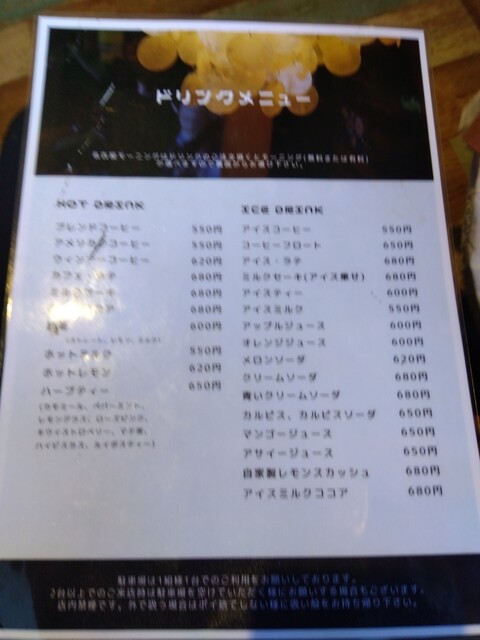 ドリンクメニュー
HOT DRINK
ブレンドコーヒー 550円
アメリカンコーヒー 550円
ウィンナーコーヒー 620円
カフェ・ラテ 680円
ミルクセーキ 680円
680円
紅茶 600円
(ストレート、レモン、ミルク)
ホットミルク 550円
ホットレモン 620円
ハーブティー 650円
(カモミール、ペパーミント、
レモングラス、ローズヒップ、
ハイビスカス、ルイボスティー)
ICE DRINK
アイスコーヒー 550円
コーヒーフロート 650円
アイス・ラテ 680円
ミルクセーキ(アイス乗せ) 680円
アイスティー 600円
アイスミルク 550円
アップルジュース 600円
オレンジジュース 600円
メロンソーダ 620円
クリームソーダ 680円
青いクリームソーダ 680円
カルピス、カルピスソーダ 650円
マンゴージュース 650円
アサイージュース 650円
自家製レモンスカッシュ 680円
アイスミルクココア 680円
駐車場は1組様1台でのご利用をお願いしております。
2台以上でのご来店時は駐車場を空けていただく様にお願いする場合もございます。
店内禁煙です。外で吸う場合はポイ捨てしない様に吸い殻をお持ち帰り下さい。